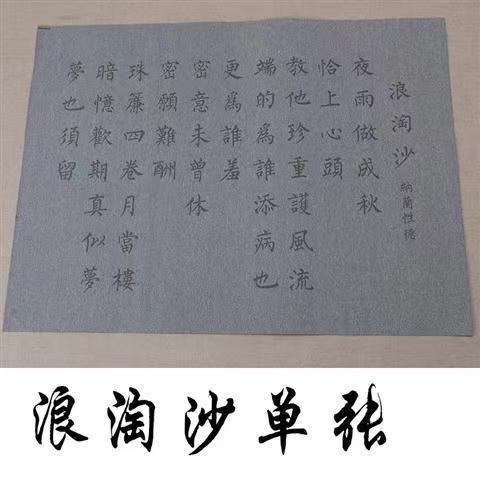 浪淘沙 納蘭性德
夜雨做成秋
恰上心頭
教他珍重護風流
端的為誰添病也
更為誰羞
密意未曾休
密願難酬
珠簾四卷月當樓
暗憶歡期真似夢
夢也須留
浪淘沙单张